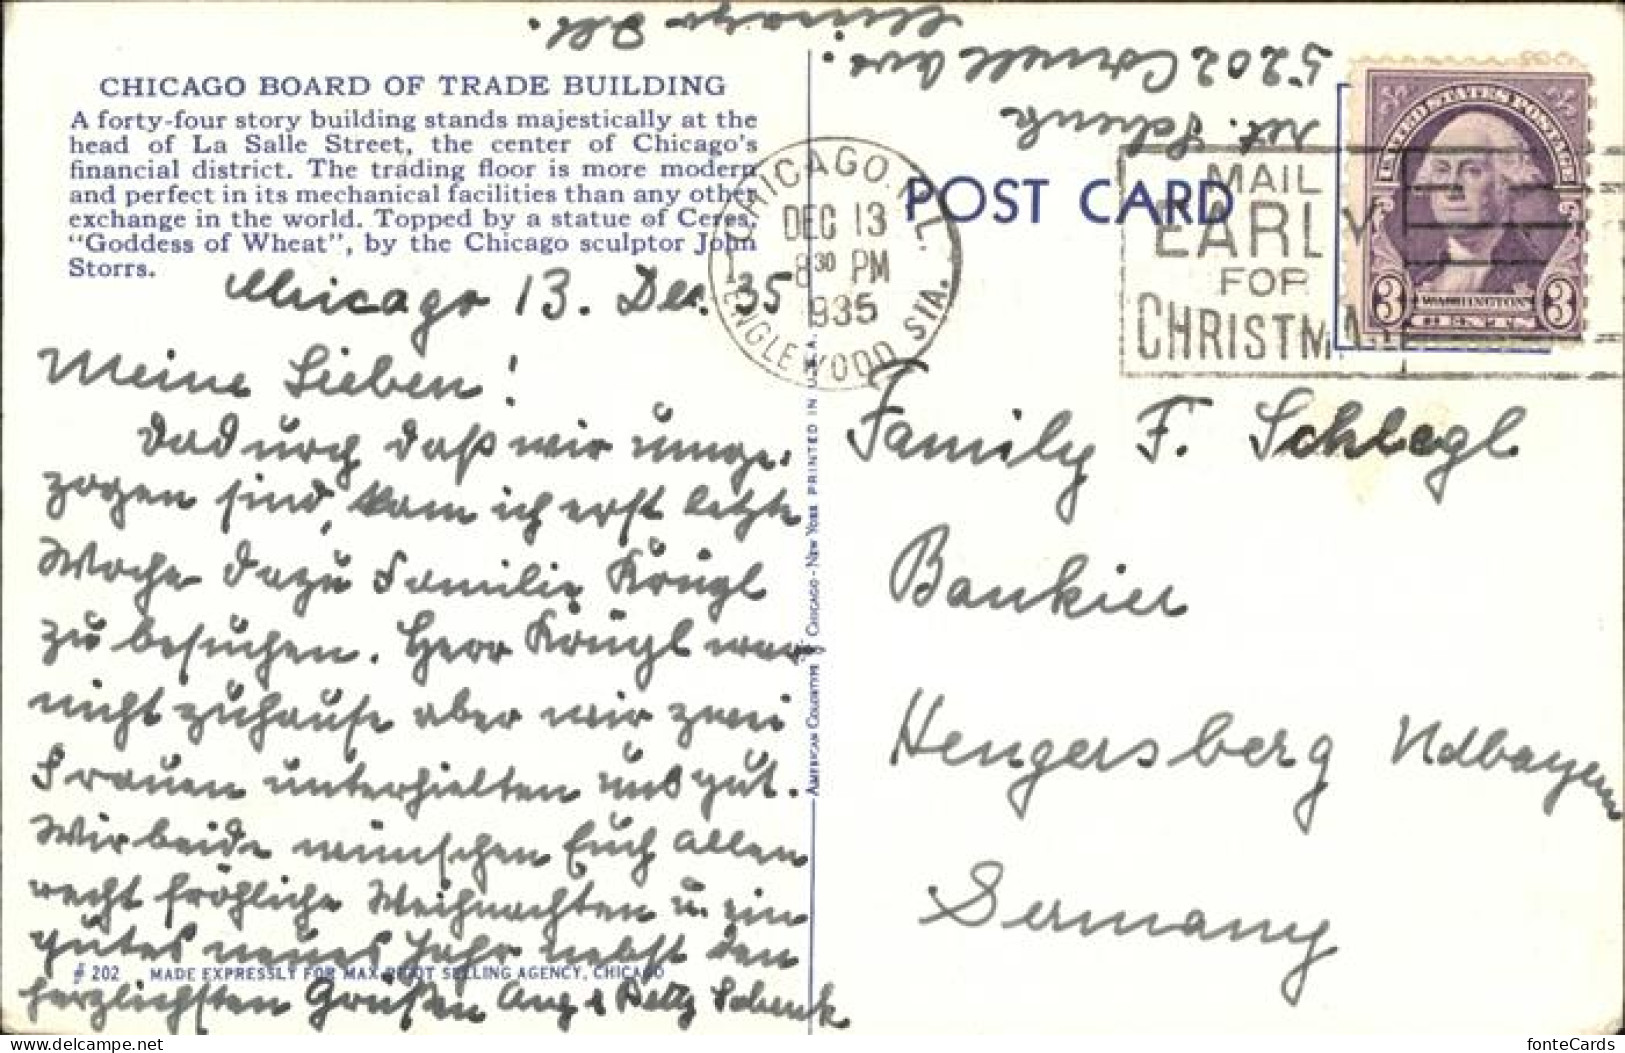 Chicago Ill.
5202 Cornell Ave.
ret. Schenk
CHICAGO BOARD OF TRADE BUILDING
A forty-four story building stands majestically at the
head of La Salle Street, the center of Chicago's
financial district. The trading floor is more modern
and perfect in its mechanical facilities than any other
exchange in the world. Topped by a statue of Ceres,
"Goddess of Wheat", by the Chicago sculptor John
Storrs.
Chicago 13. Dez. 35
Meine Lieben!
Dadurch daß wir umge-
zogen sind, kam ich erst letzte
Woche dazu Familie Krügl
zu besuchen. Herr Krügl war
nicht zuhause aber wir zwei
Frauen unterhielten uns gut.
Wir beide wünschen Euch allen
recht fröhliche Weihnachten u. ein
gutes neues Jahr nebst den
herzlichsten Grüßen Aug & Betty Schenk
# 202 MADE EXPRESSLY FOR MAX RIGOT SELLING AGENCY, CHICAGO
AMERICAN COLORTYPE CHICAGO-NEW YORK PRINTED IN U.S.A.
POST CARD
CHICAGO, ILL.
DEC 13
8 30 PM
1935
ENGLEWOOD STA.
MAIL
EARLY
FOR
CHRISTMAS
UNITED STATES POSTAGE
3 WASHINGTON 3
CENTS
Family F. Schlegl
Bankier
Hengersberg Ndbayern
Germany
delcampe.net
fonteCards